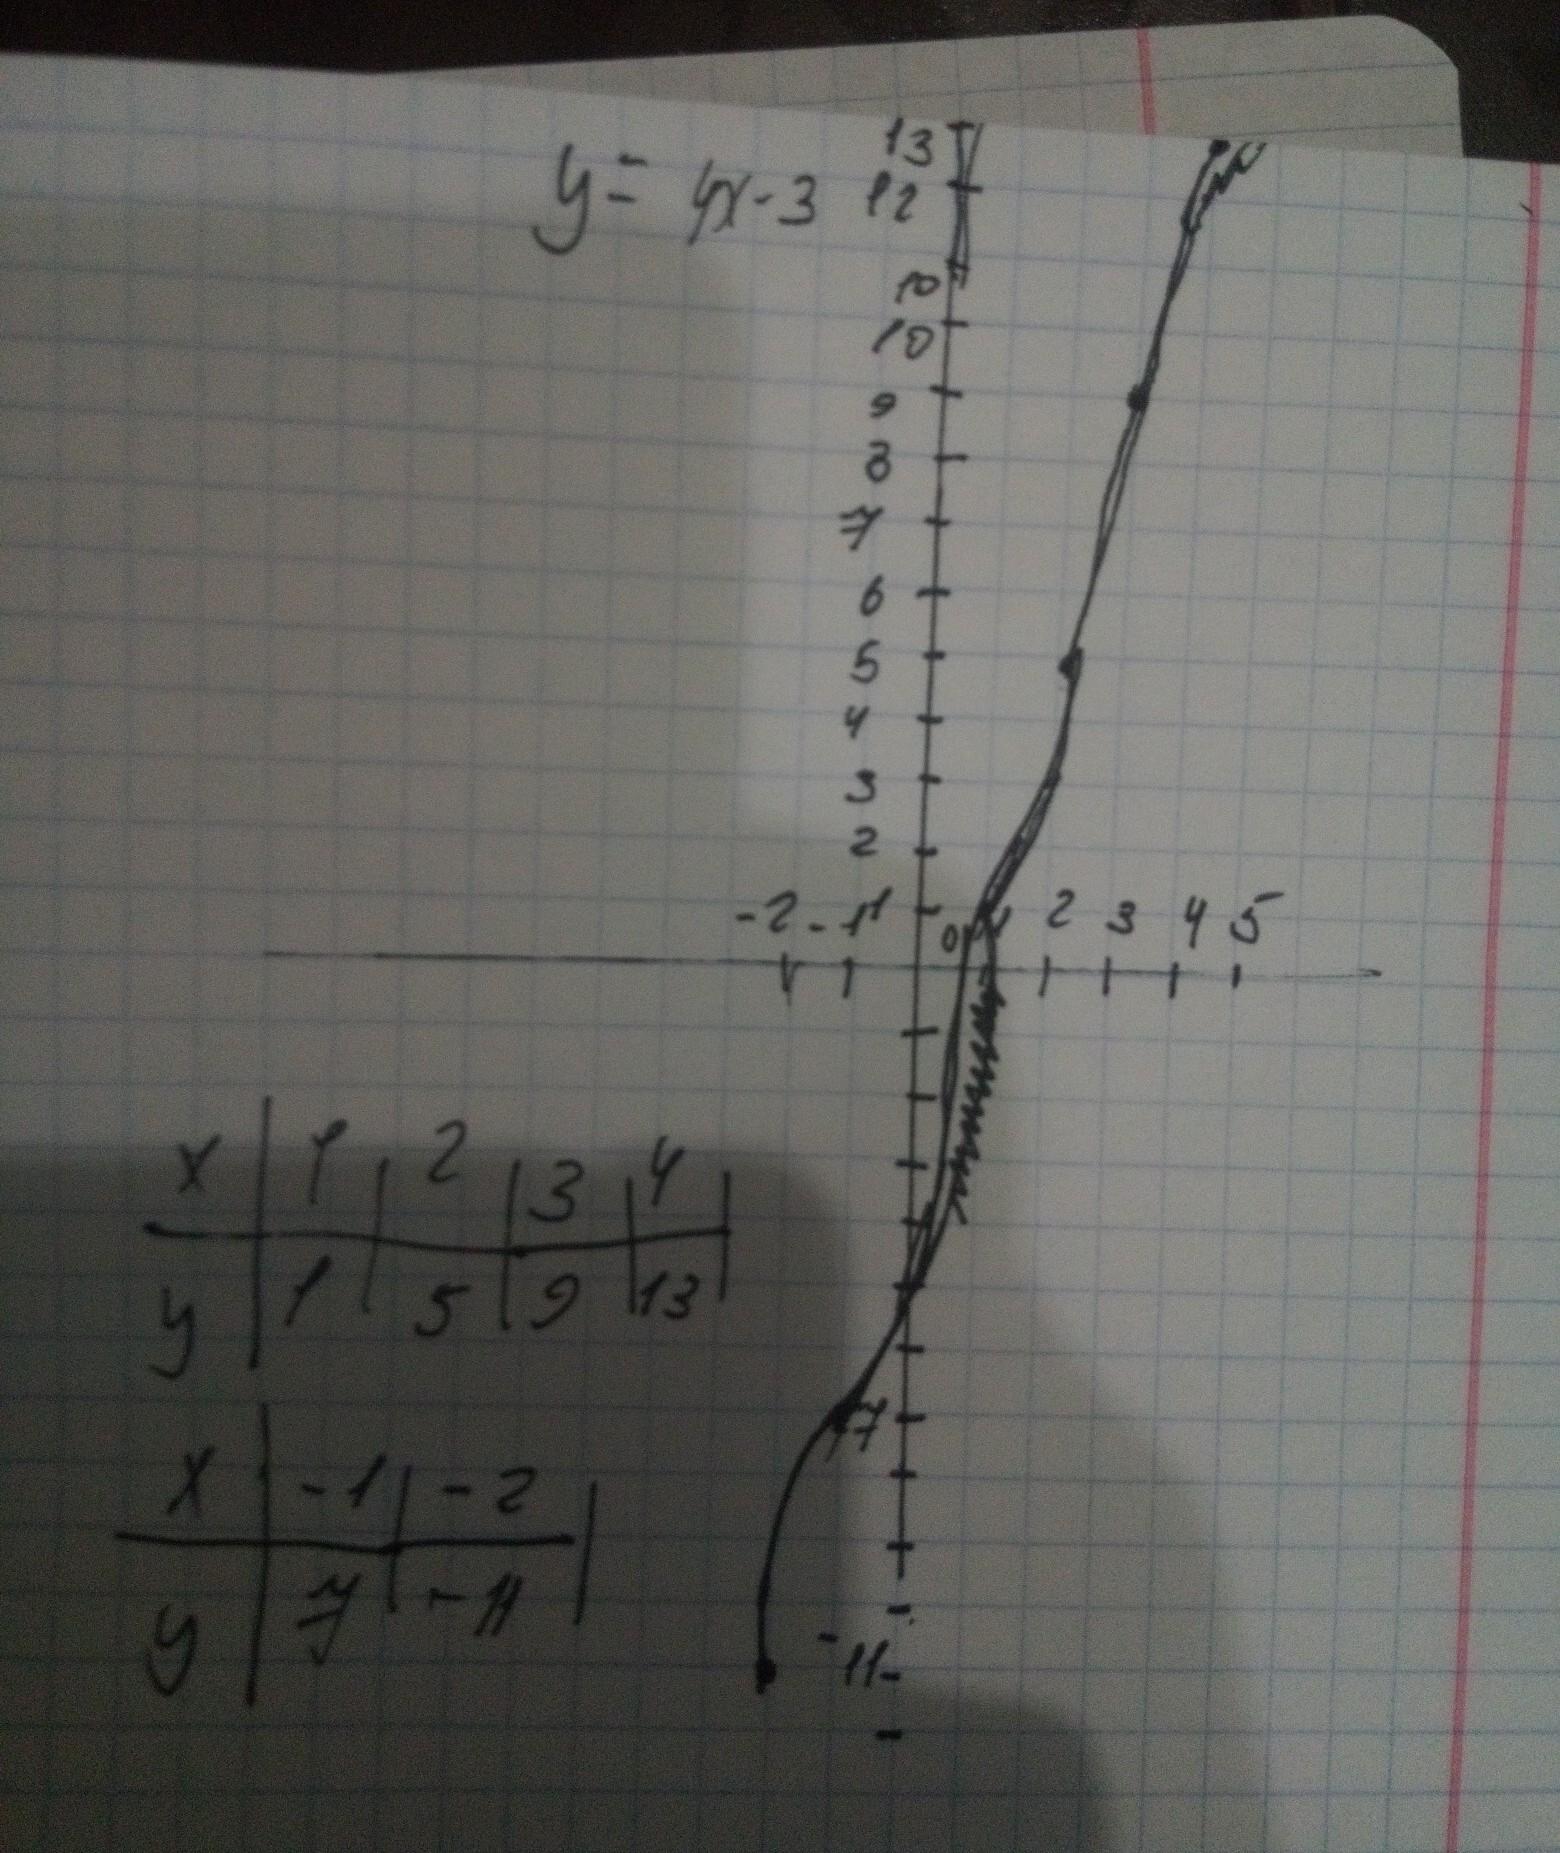 y = 4x - 3
13
12
10
10
9
8
7
6
5
4
3
2
-2 -1 1 0 1 2 3 4 5
x 1 2 3 4
y 1 5 9 13
-7
x -1 -2
y -7 -11
-11